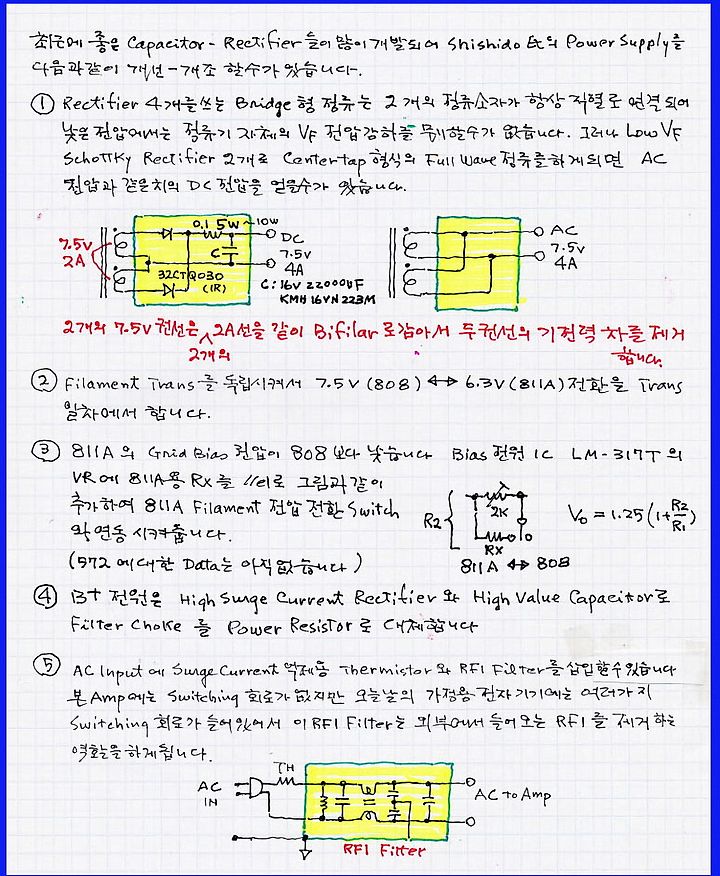 최근에 좋은 Capacitor - Rectifier 들이 많이 개발되어 Shishido Etc의 Power Supply를
다음과 같이 개선-개조 할수가 있습니다.
① Rectifier 4개를 쓰는 Bridge 형 정류는 2개의 정류소자가 항상 직렬로 연결되어
낮은 전압에서는 정류기 자체의 VF 전압강하를 무시할수가 없습니다. 그러나 Low VF
Schottky Rectifier 2개로 Centertap 형식의 Full Wave 정류를 하게되면 AC
전압과 같은치의 DC 전압을 얻을수가 있습니다.
7.5V
2A
0.1 5W~10W
C
32CTQ030
(IR)
DC
7.5V
4A
C: 16V 22000uF
KMH 16VN 223M
AC
7.5V
4A
2개의 7.5V 권선은 2A선을 같이 Bifilar 로감아서 두권선의 기전력 차를 제거
2개의
합니다.
② Filament Trans 를 독립시켜서 7.5V (808) ↔ 6.3V (811A) 전환을 Trans
일차에서 합니다.
③ 811A 의 Grid Bias 전압이 808 보다 낮습니다 Bias 전원 IC LM-317T 의
VR에 811A용 Rx를 //el로 그림과 같이
추가하여 811A Filament 전압 전환 Switch
와 연동 시켜줍니다.
(572 에대한 Data는 아직 없습니다)
R2
2K
Rx
811A ↔ 808
Vo = 1.25 (1+R2/R1)
④ B+ 전원은 High Surge Current Rectifier 와 High Value Capacitor로
Filter Choke 를 Power Resistor 로 대체합니다
⑤ AC Input 에 Surge Current 억제용 Thermistor 와 RFI Filter를 삽입할수있습니다
본 Amp에는 Switching 회로가 없지만 오늘날의 가정용 전자기기에는 여러가지
Switching 회로가 들어있어서 이 RFI Filter는 외부에서 들어오는 RFI 를 제거하는
역할을 하게됩니다.
TH
AC
IN
AC to Amp
RFI Filter